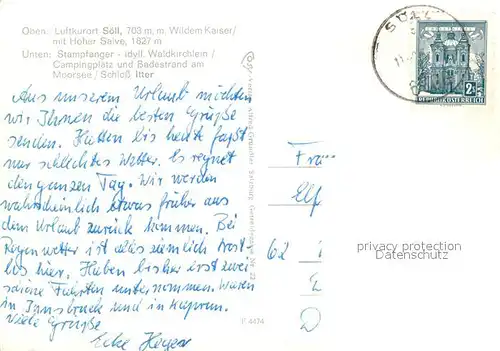 Oben: Luftkurort Söll, 703 m, m. Wildem Kaiser/
mit Hoher Salve, 1827 m
Unten: Stampfanger - idyll. Waldkirchlein /
Campingplatz und Badestrand am
Moorsee / Schloß Itter
Aus unserem Urlaub möchten
wir Ihnen die besten Grüße
senden. Hatten bis heute fast
nur schlechtes Wetter. Es regnet
den ganzen Tag. Wir werden
wahrscheinlich etwas früher aus
dem Urlaub zurück kommen. Bei
Regenwetter ist alles ziemlich trost-
los hier. Haben bisher erst zwei
schöne Fahrten unternommen. Waren
in Innsbruck und in Kaprun.
Viele Grüße
P 4474
SÖLL
2
REPUBLIK ÖSTERREICH
Frau
Elf
62
D
privacy protection
Datenschutz